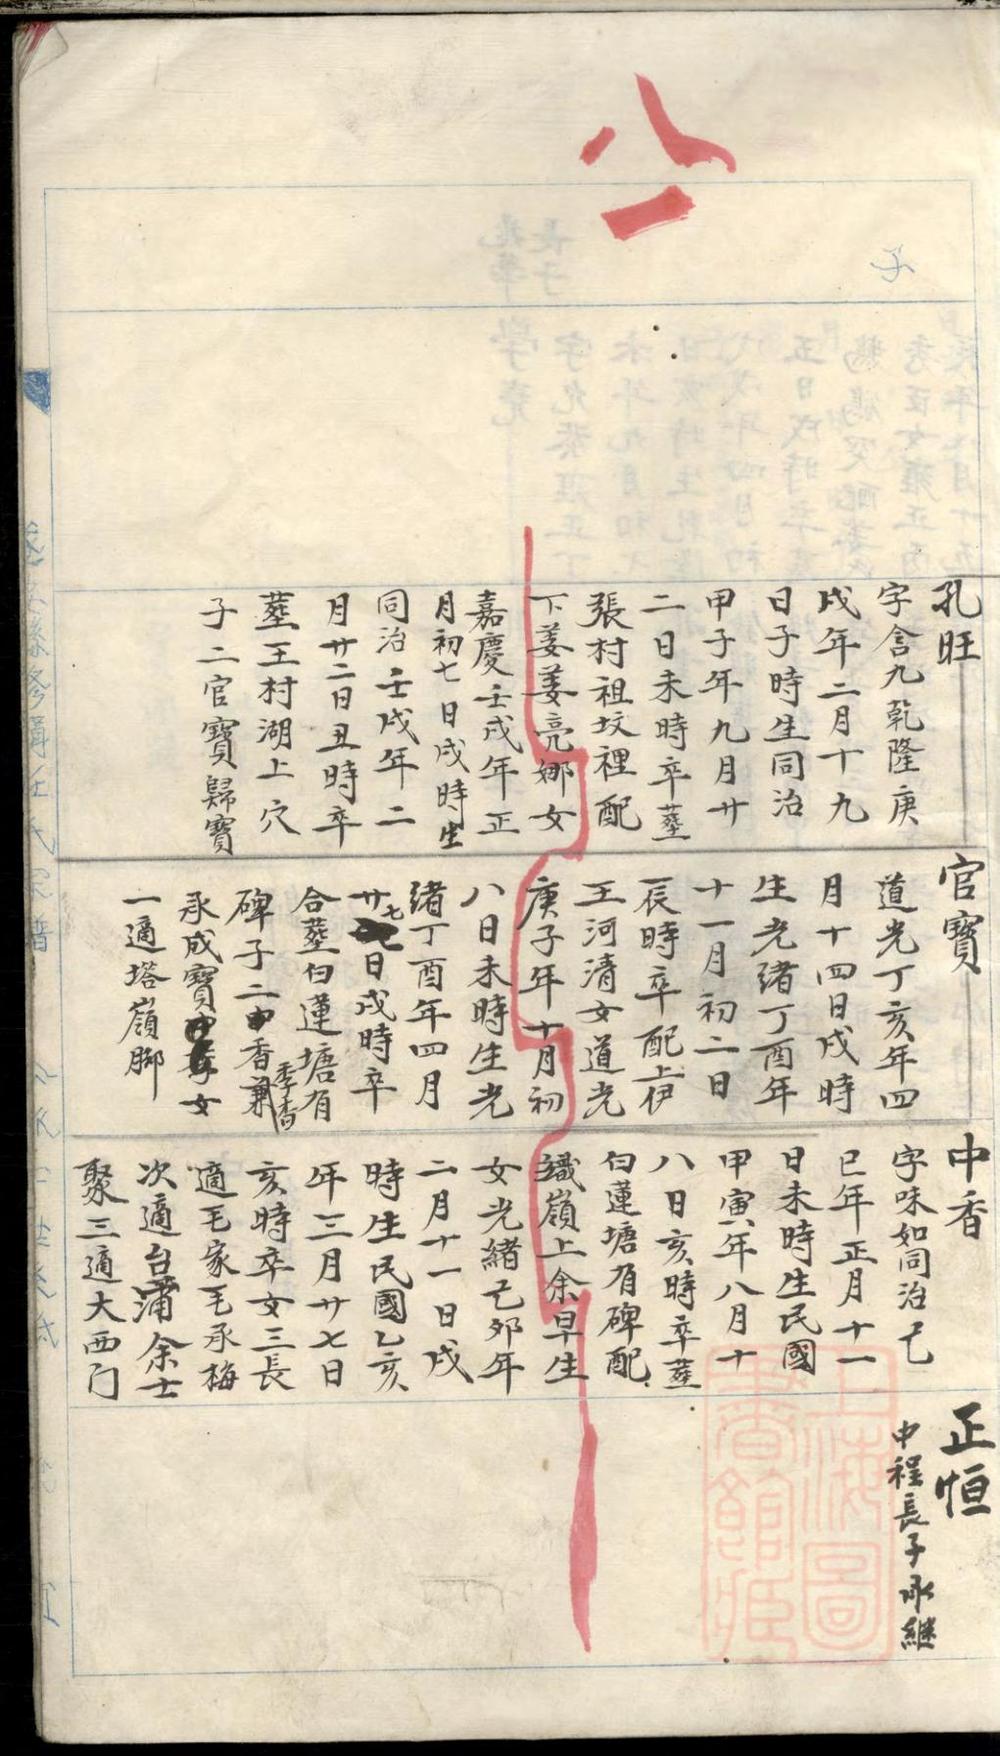 八一
孔旺
字含九乾隆庚
戌年二月十九
日子時生同治
甲子年九月廿
二日未時卒塟
張村祖坟裡配
下姜姜亮娜女
嘉慶壬戌年正
月初七日戌時生
同治壬戌年二
月廿二日丑時卒
塟王村湖上穴
子二官寶歸寶
官寶
道光丁亥年四
月十四日戌時
生光緒丁酉年
十一月初二日
辰時卒配上伊
王河清女道光
庚子年十月初
八日未時生光
緒丁酉年四月
廿七日戌時卒
合塟白蓮塘有
碑子二中香兼季香
承成寶女
一適塔嶺脚
中香
字味如同治己
巳年正月十一
日未時生民國
甲寅年八月十
八日亥時卒塟
白蓮塘有碑配
嶺上余早生
女光緒己卯年
二月十一日戌
時生民國乙亥
年三月廿七日
亥時卒女三長
適毛家毛承梅
次適台蒲余士
聚三適大西门
正恒
中程長子承継
上海圖
書館